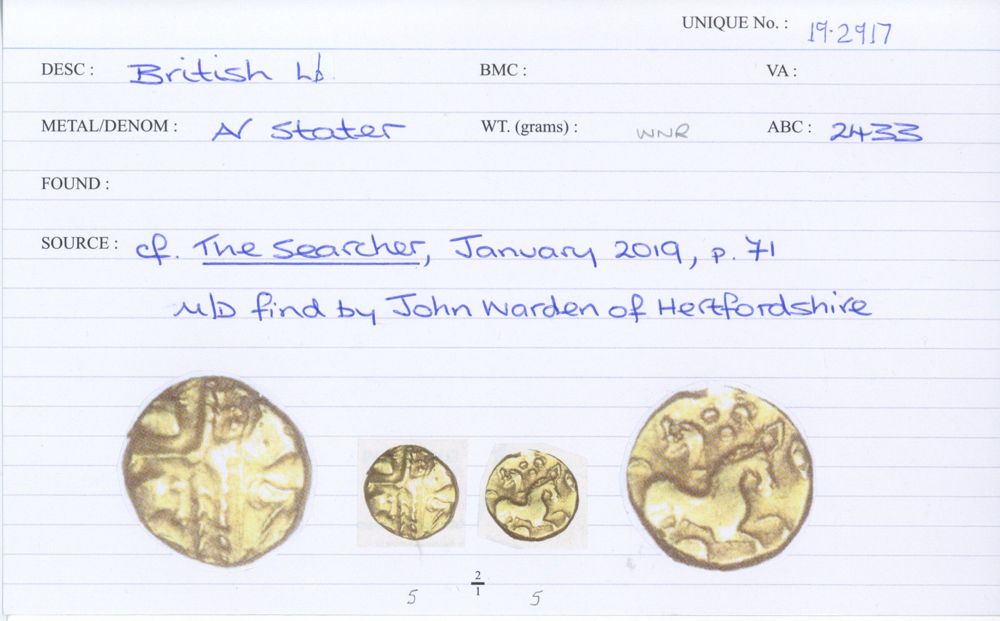 UNIQUE No. : 19.2917
DESC : British Lb. BMC : VA :
METAL/DENOM : AV Stater WT. (grams) : WNR ABC : 2433
FOUND :
SOURCE : cf. The Searcher, January 2019, p. 71
M/D find by John Warden of Hertfordshire
2
1
5 5